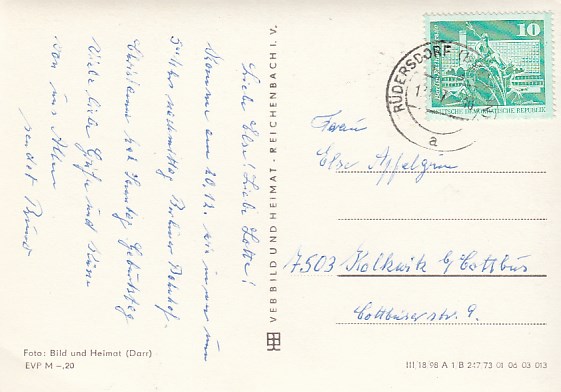 Liebe Else! Liebe Lotte!
Komme am 20.12. wie immer um
nachmittag Berliner Bahnhof.
hat Sonntag Geburtstag
Viele liebe Grüße und Küsse
von uns Allen
sendet
VEB BILD UND HEIMAT · REICHENBACH I. V.
10
DEUTSCHE DEMOKRATISCHE REPUBLIK
RÜDERSDORF
a
Frau
Else Apfelgrün
7503 Kolkwitz b/Cottbus
Cottbuserstr. 9.
Foto: Bild und Heimat (Darr)
EVP M –,20
III 18 98 A 1 B 247 73 01 06 03 013